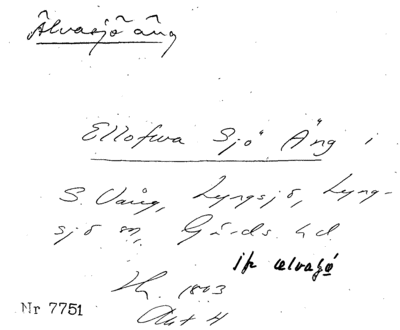 Älvasjö äng
Ellofwa Sjö Äng i
S. Vång, Lyngsjö, Lyng-
sjö sn, Gärds hd
ælvasjö
1803
Akt 4
Nr 7751